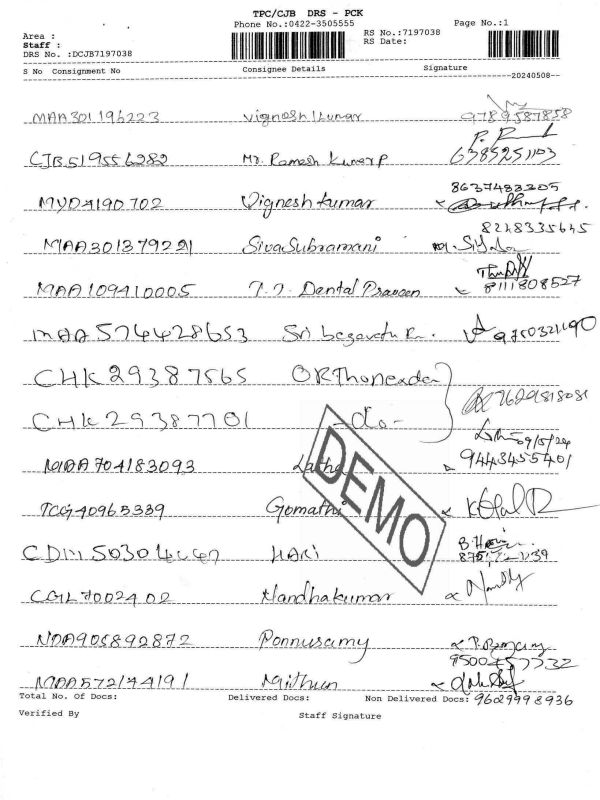 TPC/CJB DRS - PCK
Phone No.:0422-3505555 Page No.:1
Area : RS No.:7197038
Staff : RS Date:
DRS No. :DCJB7197038
S No Consignment No Consignee Details Signature
20240508
MAA301196223 Vignesh Kumar 9789587858
CJB519556282 Mr. Ramesh Kumar P 6385251103
MYD4190702 Vignesh kumar 8637483205
MAA301379221 SivaSubramani 8248335645
MAA109410005 Dental Praveen 8111808527
MAA574428653 Sri 9750321190
CHK29387565 ORThonexder
CHK29387701 -do- 7629818081
09/5/24
MDA704183093 Latha 9443455401
TCG40965339 Gomathi
HARI
CGL7002402 Nandhakumar
NDA905892872 Ponnusamy
9500457732
MAA572144191 Mithun
DEMO
Total No. Of Docs: Delivered Docs: Non Delivered Docs: 9629998936
Verified By Staff Signature